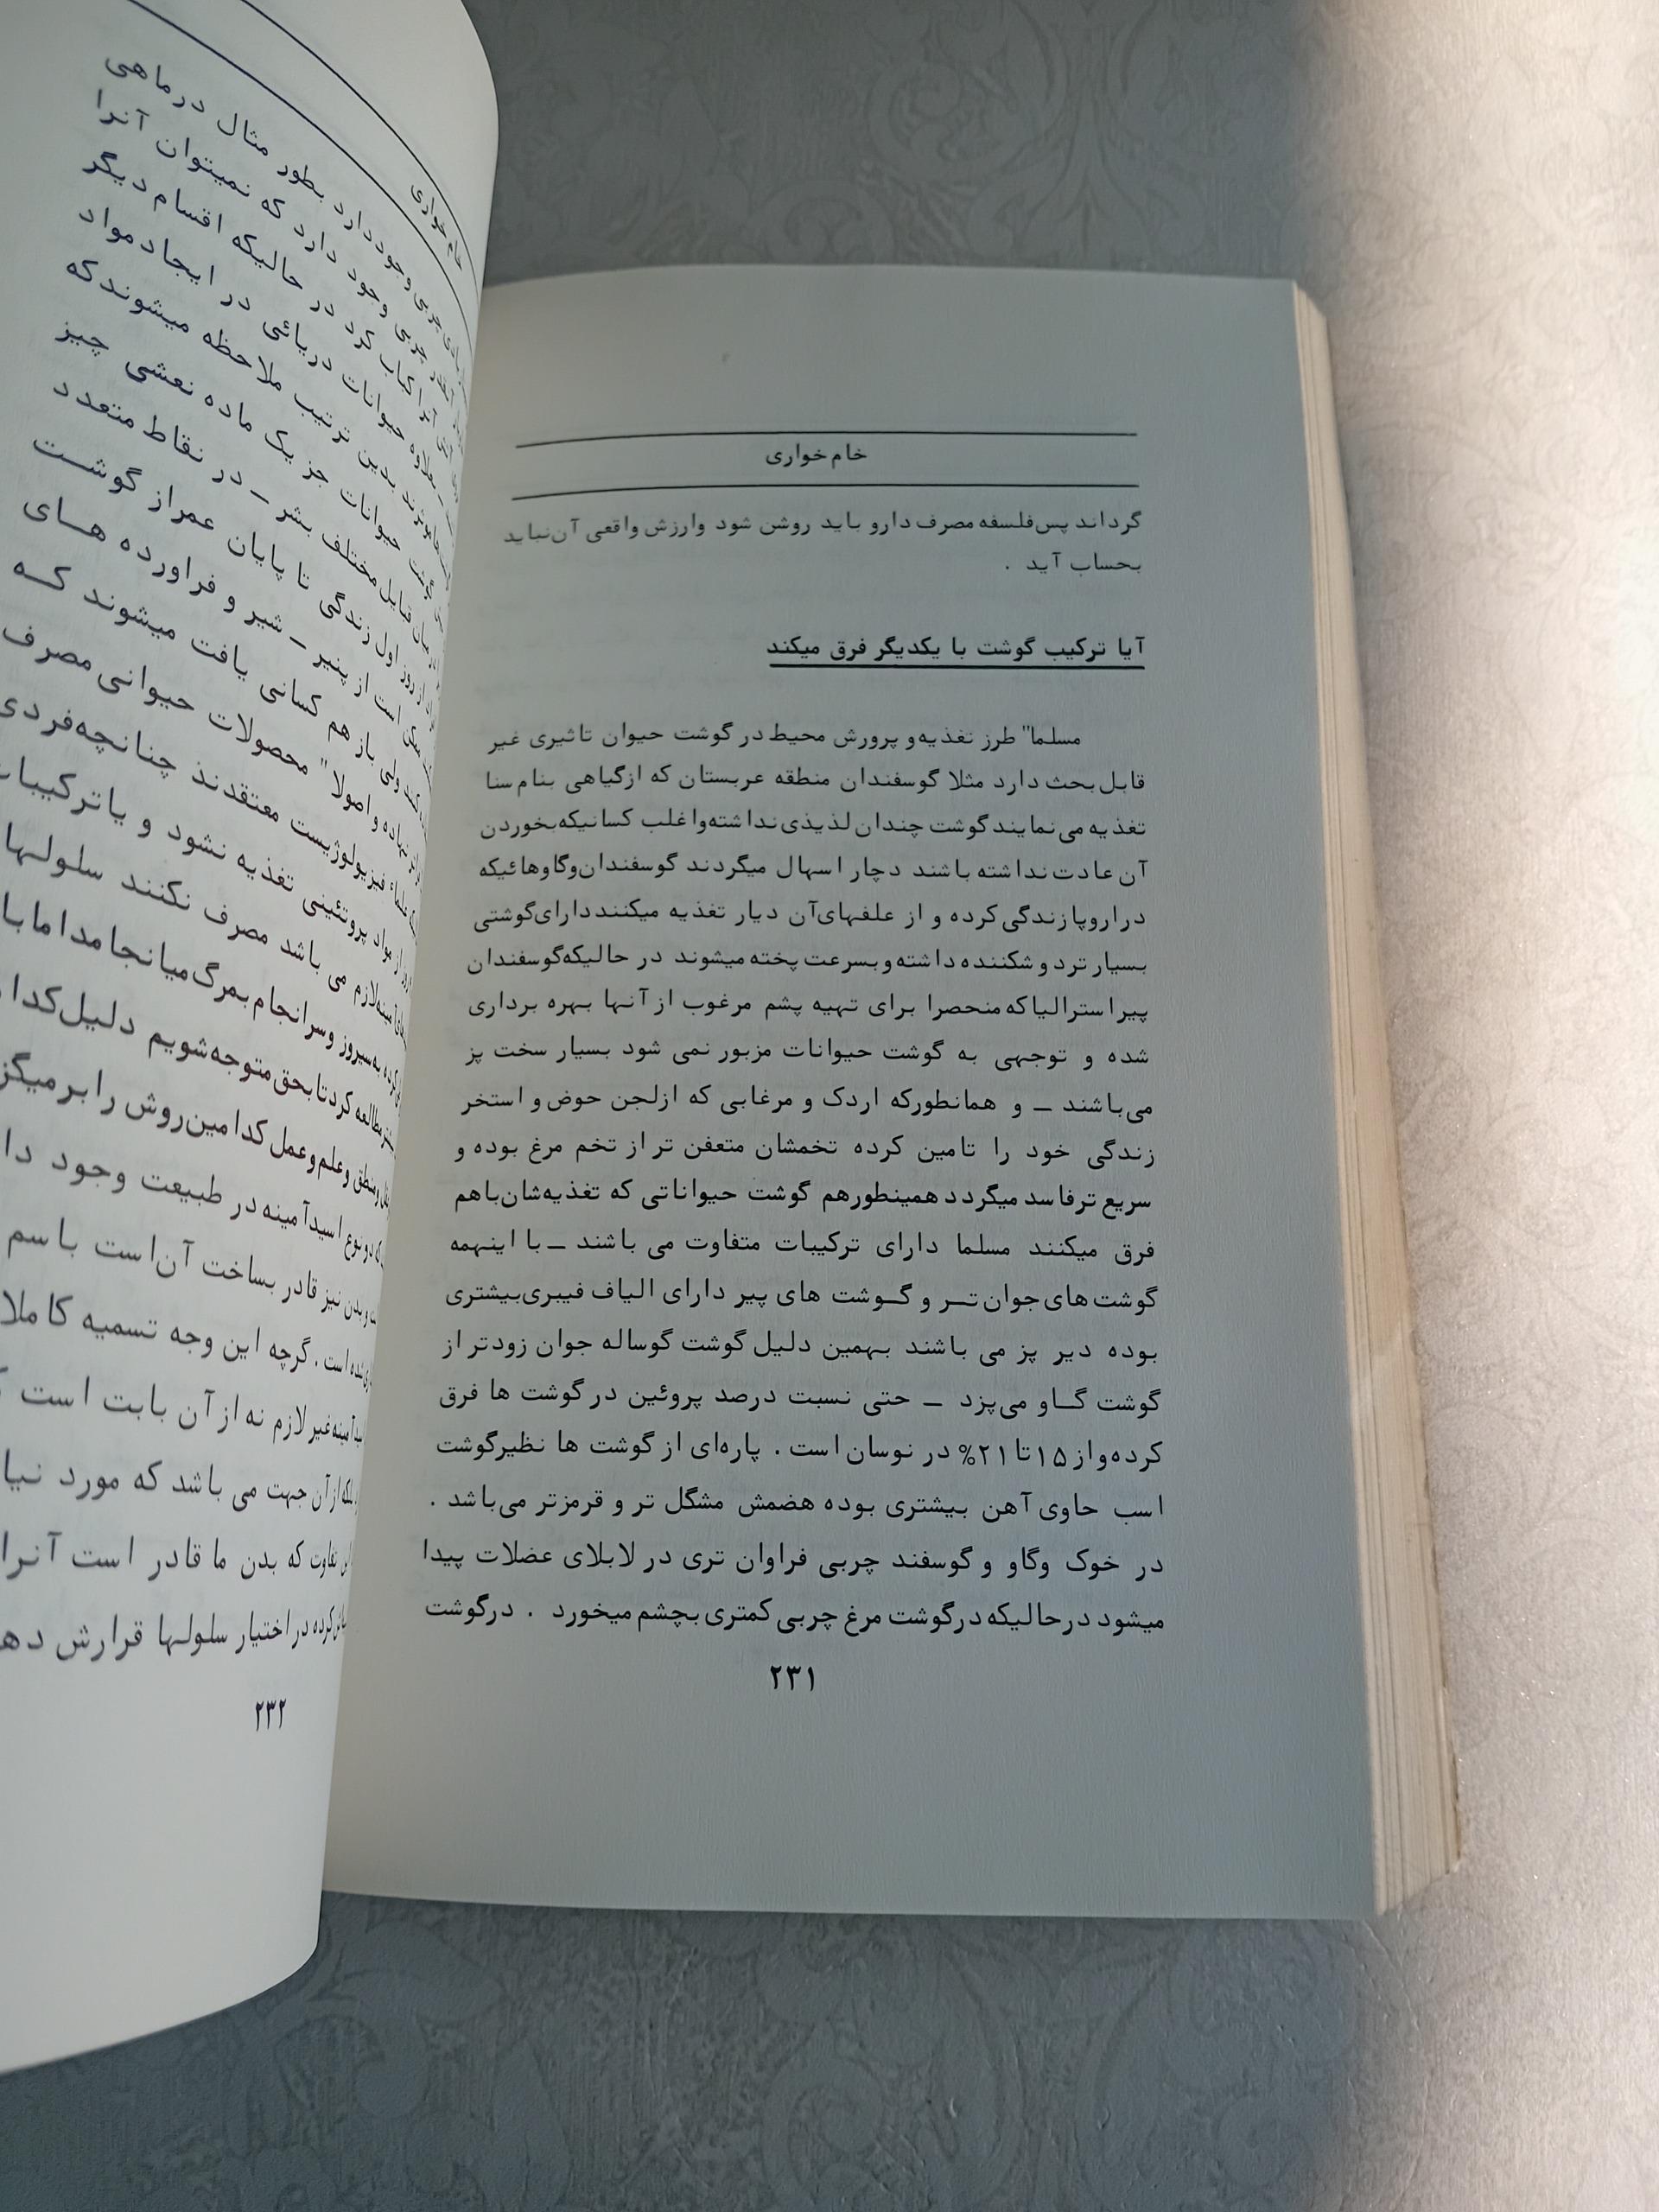 خام خواری
گرداند پس فلسفه مصرف دارو باید روشن شود وارزش واقعی آن نباید
بحساب آید .
آیا ترکیب گوشت با یکدیگر فرق میکند
مسلما" طرز تغذیه و پرورش محیط در گوشت حیوان تاثیری غیر
قابل بحث دارد مثلا گوسفندان منطقه عربستان که ازگیاهی بنام سنا
تغذیه می نمایند گوشت چندان لذیذی نداشته واغلب کسانیکه بخوردن
آن عادت نداشته باشند دچار اسهال میگردند گوسفندان وگاوهائیکه
دراروپا زندگی کرده و از علفهای آن دیار تغذیه میکنند دارای گوشتی
بسیار ترد و شکننده داشته و بسرعت پخته میشوند در حالیکه گوسفندان
پیر استرالیا که منحصرا برای تهیه پشم مرغوب از آنها بهره برداری
شده و توجهی به گوشت حیوانات مزبور نمی شود بسیار سخت پز
می باشند ــ و همانطورکه اردک و مرغابی که ازلجن حوض و استخر
زندگی خود را تامین کرده تخمشان متعفن تر از تخم مرغ بوده و
سریع ترفاسد میگردد همینطورهم گوشت حیواناتی که تغذیه شان باهم
فرق میکنند مسلما دارای ترکیبات متفاوت می باشند ــ با اینهمه
گوشت های جوان تــر و گــوشت های پیر دارای الیاف فیبری بیشتری
بوده دیر پز می باشند بهمین دلیل گوشت گوساله جوان زودتر از
گوشت گــاو می پزد ــ حتی نسبت درصد پروئین در گوشت ها فرق
کرده و از ۱۵ تا ۲۱% در نوسان است . پاره ای از گوشت ها نظیر گوشت
اسب حاوی آهن بیشتری بوده هضمش مشگل تر و قرمزتر می باشد .
در خوک وگاو و گوسفند چربی فراوان تری در لابلای عضلات پیدا
میشود درحالیکه درگوشت مرغ چربی کمتری بچشم میخورد . درگوشت
۲۳۱
خام خواری
چربی وجود دارد بطور مثال درماهی
چربی وجود دارد که نمیتوان آنرا
کباب کرد در حالیکه اقسام دیگر
حیوانات دریائی در ایجاد مواد
بدین ترتیب ملاحظه میشوند که
گوشت حیوانات جز یک ماده نعشی چیز
قبایل مختلف بشر ــ در نقاط متعدد
از روز اول زندگی تا پایان عمر از گوشت
است از پنیر ــ شیر و فراورده هــای
ولی باز هم کسانی یافت میشوند کــه
و اصولا" محصولات حیوانی مصرف
علماء فیزیولوژیست معتقدند چنانچه فردی
از مواد پروتئینی تغذیه نشود و یا ترکیبات
لازم می باشد مصرف نکنند سلولها
وسرانجام بمرگ میانجامد اما با
مطالعه کرد تا بحق متوجه شویم دلیل کدا
منطق و علم و عمل کدامین روش را برمیگز
دو نوع اسید آمینه در طبیعت وجود دا
و بدن نیز قادر بساخت آن است باسم
شده است . گرچه این وجه تسمیه کاملا
آمینه غیر لازم نه از آن بابت است
بلکه از آن جهت می باشد که مورد نیا
تفاوت که بدن ما قادر است آنرا
کرده در اختیار سلولها قرارش ده
۲۳۲